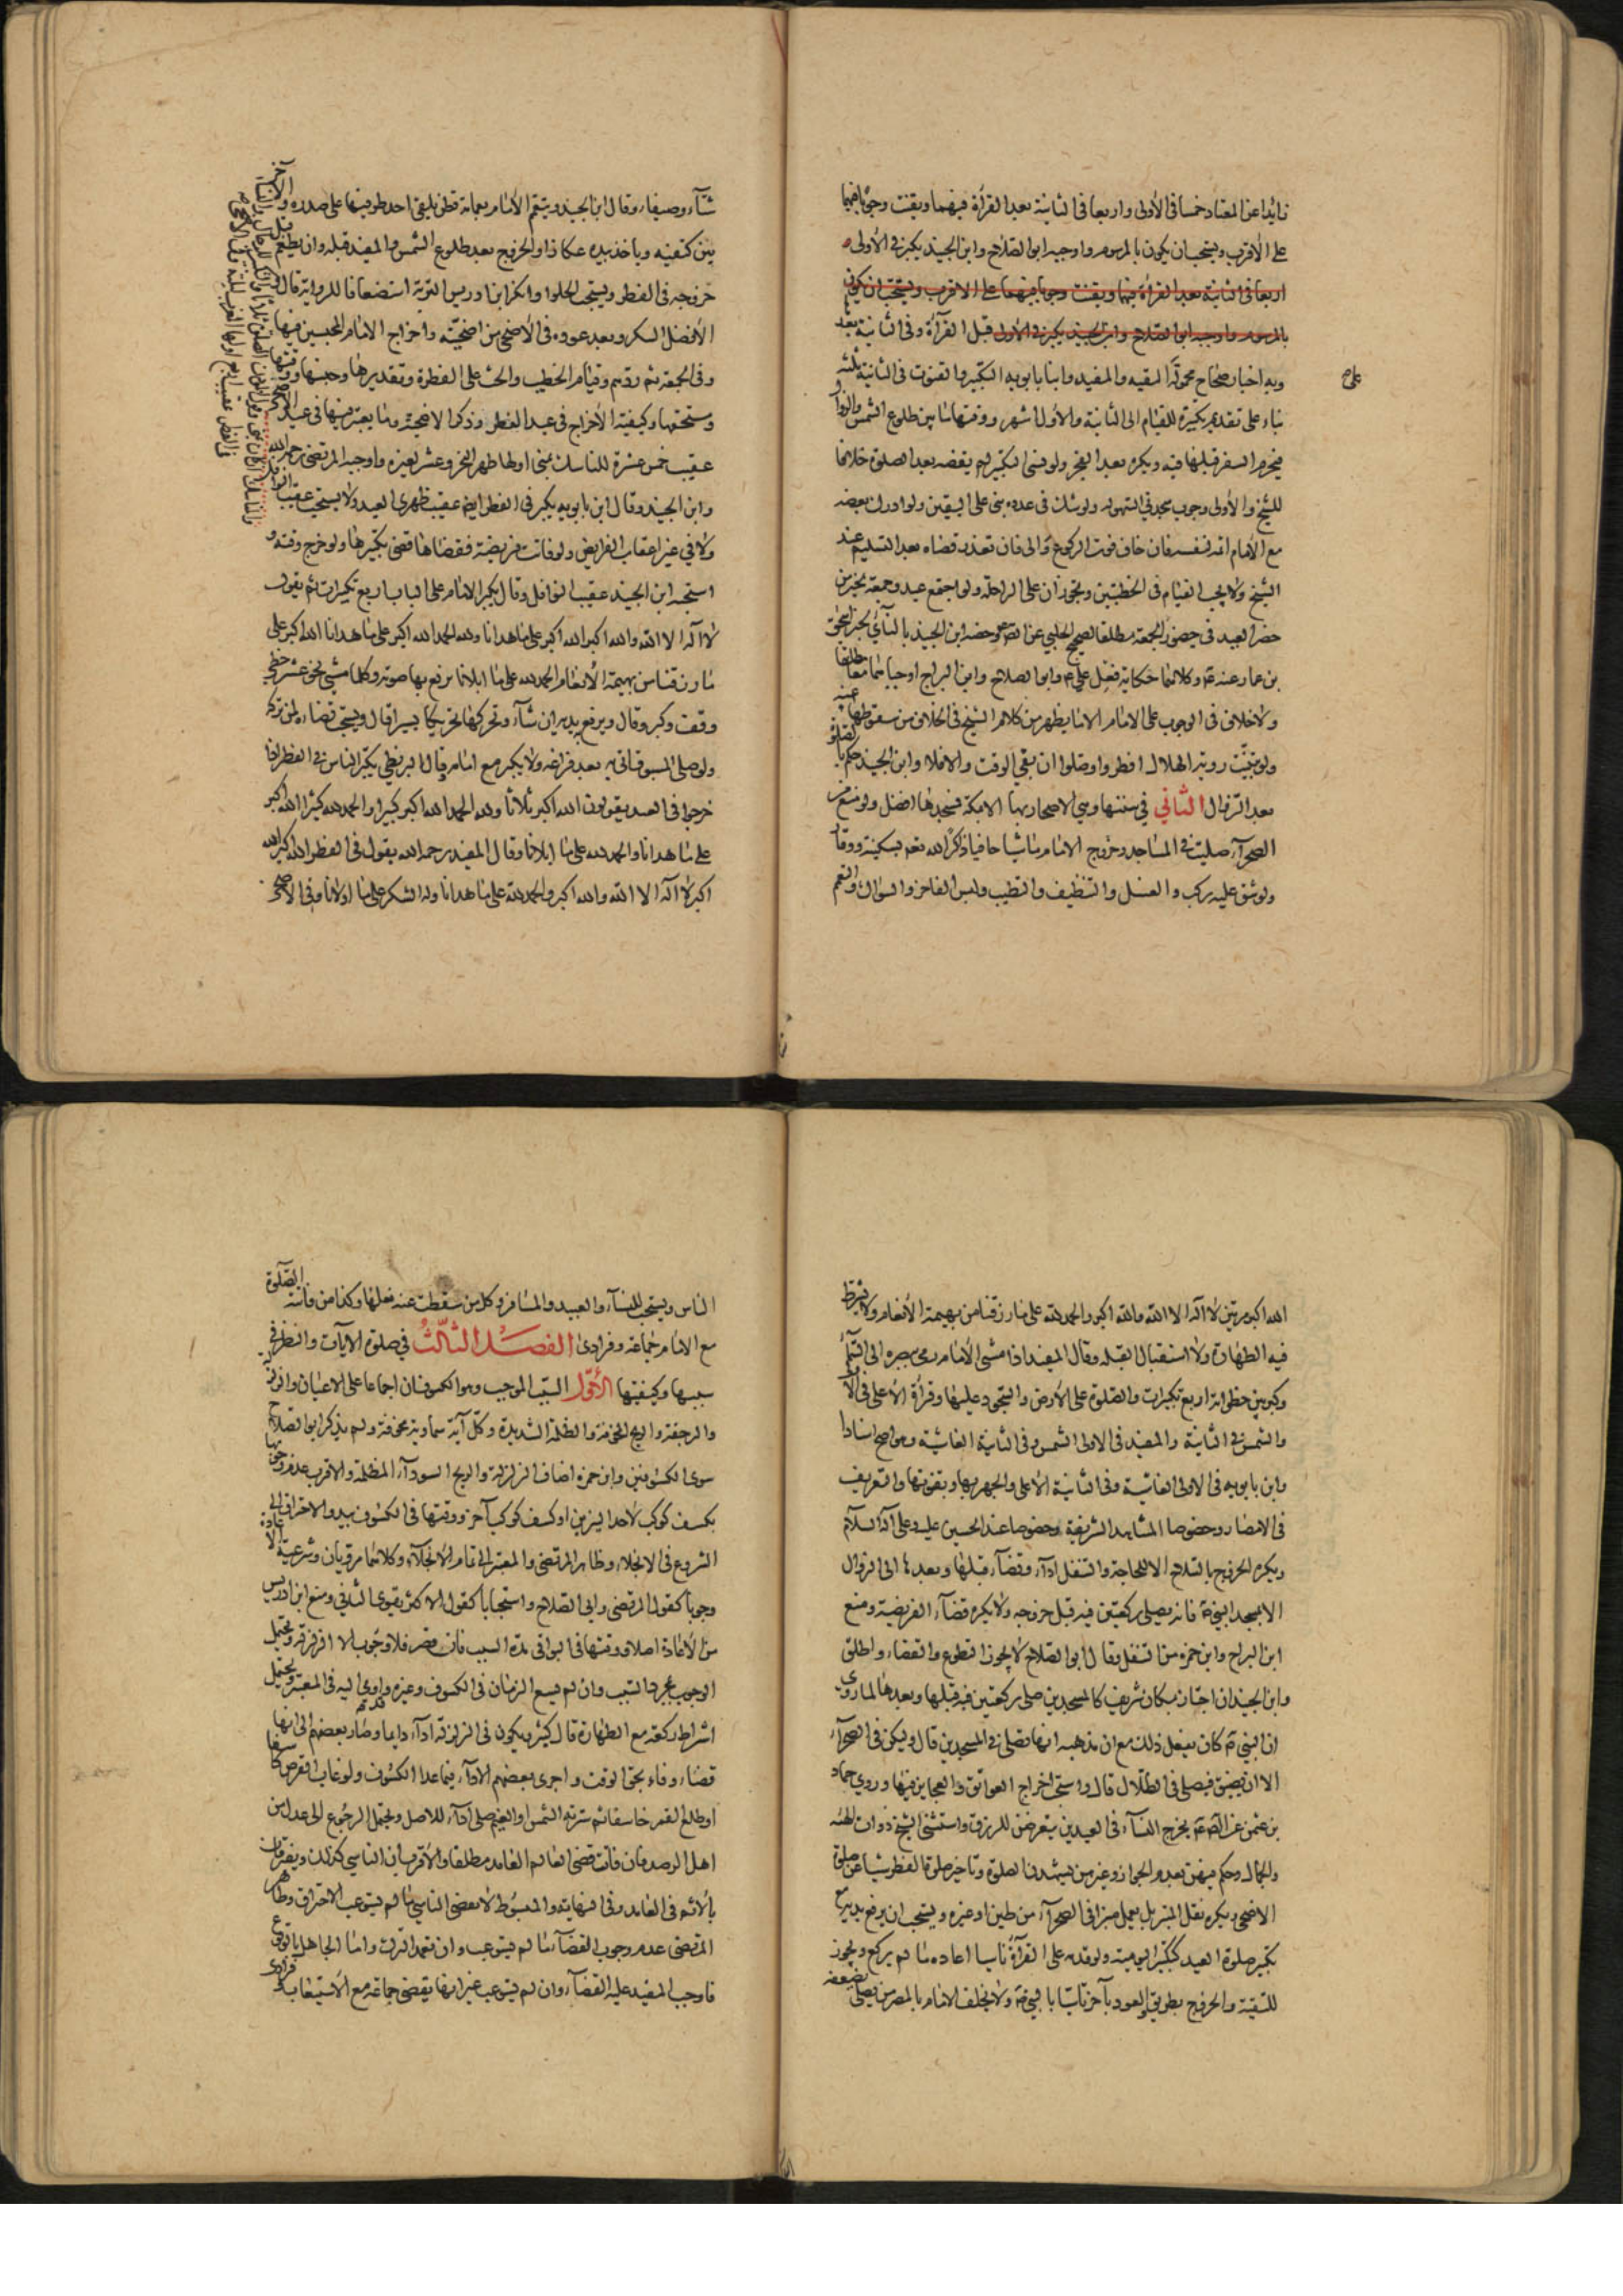 زائدا عن المعتاد خمسا فى الأولى واربعا فى الثانية بعد القرأة فيهما ويقنت وجوبا فيهما
على الاقرب ويستحب ان يكون بالمرسوم واوجبه ابو الصلاح وابن الجنيد يكبر فى الأولى
اربعا فى الثانية بعد القرأة فيهما ويقنت وجوبا فيهما على الاقرب ويستحب ان يكون
بالمرسوم واوجبه ابو الصلاح وابن الجنيد يكبر فى الأولى قبل القرآة وفى الثانية بعد
وبه اخبار صحاح محمولة التقيه والمفيد وابنا بابويه التكبير والقنوت فى الثانية ثلثة
على
بناء على تقديم تكبيرة للقيام الى الثانية والأول اشهر ووقتها ما بين طلوع الشمس والزوال
فيحرم السفر قبلها فيه ويكره بعد الفجر ولو نسى التكبير لم يقضه بعد الصلوة خلافا
للشيخ والأولى وجوب سجدتى السهو له ولو شك فى عدده بنى على اليقين ولو ادرك بعضه
مع الأمام اتم لنفسه فان خاف فوت الركوع والى فان تعذر قضاه بعد التسليم عند
الشيخ ولا يجب القيام فى الخطبتين وتجوزان على الراحلة ولو اجتمع عيد وجمعة تخير من
حضر العيد فى حضور الجمعة مطلقا لصحيح الحلبى عن الصادق ع وخصه ابن الجنيد بالنآئى لخبر اسحق
بن عمار عنه ع وكلاهما حكاية فعل على ع وابو الصلاح وابن البراج اوجباهما مطلقا
ولا خلاف فى الوجوب على الامام الا ما يظهر من كلام الشيخ فى الخلاف من سقوطها عنه
ولو تبينت روية الهلال افطر وا وصلوا ان بقى الوقت والا فلا وابن الجنيد حكم بالصلوة
بعد الزوال الثانى فى سننها وهي الاصحار بها الا بمكة فمسجدها افضل ولو منع من
الصحرآء صليت فى المساجد وخروج الامام ماشيا حافيا ذاكرا لله تعم بسكينة ووقار
ولو شق عليه ركب والغسل والتنظيف والتطيب ولبس الفاخر والسواك والتعمم
شتآء وصيفا وقال ابن الجنيد ويتعمم الأمام بعمامة قطن يلقى احد طرفيها على صدره والآخر
بين كتفيه وياخذ بيده عكازا والخروج بعد طلوع الشمس والمفيد قبله وان يطعم قبل
خروجه فى الفطر ويستحب الحلوا وانكر ابن ادريس التربة استضعافا للرواية قال
الأفضل السكر وبعد عوده فى الأضحى من اضحيته واخراج الامام المحبسين فيها
وفى الجمعة ثم ردهم وقيام الخطيب والحث على الفطرة وتقديرها وجنسها ووقتها
ومستحقها وكيفية الأخراج فى عيد الفطر وذكر الاضحية وما يعتبر فيها فى عيد الاضحى
عقيب خمس عشرة للناسك بمنى اولها ظهر النحر وعشر لغيره واوجبه المرتضى رحمه الله
وابن الجنيد وقال ابن بابويه يكبر فى الفطر ايضا عقيب ظهرى العيد ولا يستحب عقيب النوافل
ولا فى غير اعقاب الفرايض ولو فاتت فريضة فقضاها قضى تكبيرها ولو خرج وقته و
استحبه ابن الجنيد عقيب النوافل وقال يكبر الامام على الباب اربع تكبيرات ثم يقول
لا اله الا الله والله اكبر الله اكبر على ما هدانا ولله الحمد الله اكبر على ما هدانا الله اكبر على
ما رزقنا من بهيمة الأنعام الحمد لله على ما ابلانا يرفع بها صوته وكلما مشى نحو عشر خطى
وقف وكبر وقال ويرفع يديه ان شآء وتحركها تحريكا يسيرا قال ويستحب قضاء لمن تركه
ولو صلى المسبوق اتى به بعد فراغه ولا يكبر مع امامه وقال البزنطى يكبر الناس فى الفطر اذا
خرجوا فى العيد يقولون الله اكبر ثلاثا ولله الحمد الله اكبر كبيرا والحمد لله كثيرا الله اكبر
على ما هدانا والحمد لله على ما ابلانا وقال المفيد رحمه الله يقول فى الفطر الله اكبر الله
اكبر لا اله الا الله والله اكبر والحمد لله على ما هدانا وله الشكر على ما اولانا وفى الأضحى
الله اكبر مرتين لا اله الا الله والله اكبر والحمد لله على ما رزقنا من بهيمة الأنعام ولا يشترط
فيه الطهارة ولا استقبال القبله وقال المفيد اذا مشى الأمام رمى ببصره الى السمآء
وكبر بين خطواته اربع تكبيرات والصلوة على الأرض والسجود عليها وقرأة الأعلى فى الأولى
والشمس فى الثانية والمفيد فى الاولى الشمس وفى الثانية الغاشية وهو اصح اسنادا
وابن بابويه فى الاولى الغاشية وفى الثانية الأعلى والجهر بها وبقنوتها والتعريف
فى الامصار وخصوصا المشاهد الشريفة وخصوصا عند الحسين عليه وعلى آله السلام
ويكره الخروج بالسلاح الا لحاجة والتنفل ادآء وقضآء قبلها وبعدها الى الزوال
الا بمسجد النبى ص فانه يصلى ركعتين فيه قبل خروجه ولا يكره قضآء الفريضة ومنع
ابن البراج وابن حمزه من التنفل وقال ابو الصلاح لا يجوز التطوع والقضاء واطلق
وابن الجنيد ان اجتاز بمكان شريف كالمسجدين صلى ركعتين فيه قبلها وبعدها لما روى
ان النبى ص كان يفعل ذلك مع ان مذهبه انها تصلى فى المسجدين قال ولكن فى الصحرآء
الا ان يضيق فيصلى فى الظلال قال واستحب اخراج العواتق والعجايز فيها وروى حماد
بن عثمن عن الصادق ع بخروج النسآء فى العيدين يتعرضن للرزق واستثنى الشيخ ذوات الهيئة
والجمال وحكم فيهن بعدم الجواز وغيرهن يشهدن الصلوة وتاخير صلوة الفطر شيئا عن صلوة
الاضحى ويكره نقل المنبر بل يعمل منبر فى الصحرآء من طين او غيره ويستحب ان يرفع يديه مع
تكبير صلوة العيد كتكبير اليومية ولو قدمه على القرأة ناسيا اعاده ما لم يركع ويجوز
للتقية والخروج بطريق والعود بآخر تاسيا بالنبى ص ولا يخلف الامام بالمصر من يصلى بضعفة
الناس ويستحب للنسآء والعبيد والمسافر وكل من سقطت عنه فعلها وكذا من فاتته الصلوة
مع الامام جماعة وفرادى الفصل الثالث فى صلوة الآيات والنظر فى
سببها وكيفيتها الأول السبب الموجب وهو الكسوفان اجماعا على الاعيان والزلزلة
والرجفة والريح المخوفة والظلمة الشديدة وكل آية سماوية مخوفة ولم يذكر ابو الصلاح
سوى الكسوفين وابن حمزه اضاف الزلزلة والريح السودآء المظلمة والاقرب عدم وجوبها
بكسف كوكب لأحد النيرين او كسف كوكب آخر ووقتها فى الكسوف ببدو الاحتراق الى
الشروع فى الانجلاء وظاهر المرتضى والمعتبر الى تمام الانجلآء وكلاهما مرويان وشرعية الاعادة
وجوبا كقول المرتضى وابى الصلاح واستحبابا كقول الاكثر يقوى الثانى ومنع ابن ادريس
من الأعادة اصلا ووقتها فى البواقى مدة السبب فان قصر فلا وجوب الا فى الزلزلة ويحتمل
الوجوب بمجرد السبب وان لم يسع الزمان فى الكسوف وغيره واومى اليه فى المعتبر ويحتمل
اشتراط ركعة مع الطهارة قال كثير ويكون فى الزلزلة ادآء دايما وصار بعضهم الى انها
قضاء وفاء بحق الوقت واجرى بعضهم الادآء فيما عدا الكسوف ولو غاب القرص كاسفا
او طلع القمر خاسفا ثم سترته الشمس او الغيم صلى ادآء للاصل ويحتمل الرجوع الى عدلين
اهل الرصد فان فاتت قضى العالم العامد مطلقا والأقرب ان الناسى كذلك ويفترقان
بالاثم فى العامد وفى النهاية والمبسوط لا يقضى الناسى ما لم يستوعب الاحتراق وظاهر
المرتضى عدم وجوب القضآء ما لم يستوعب وان تعمد الترك واما الجاهل بالوقوع
فاوجب المفيد عليه القضآء وان لم يستوعب غير انها يقضى جماعة مع الاستيعاب فرادى